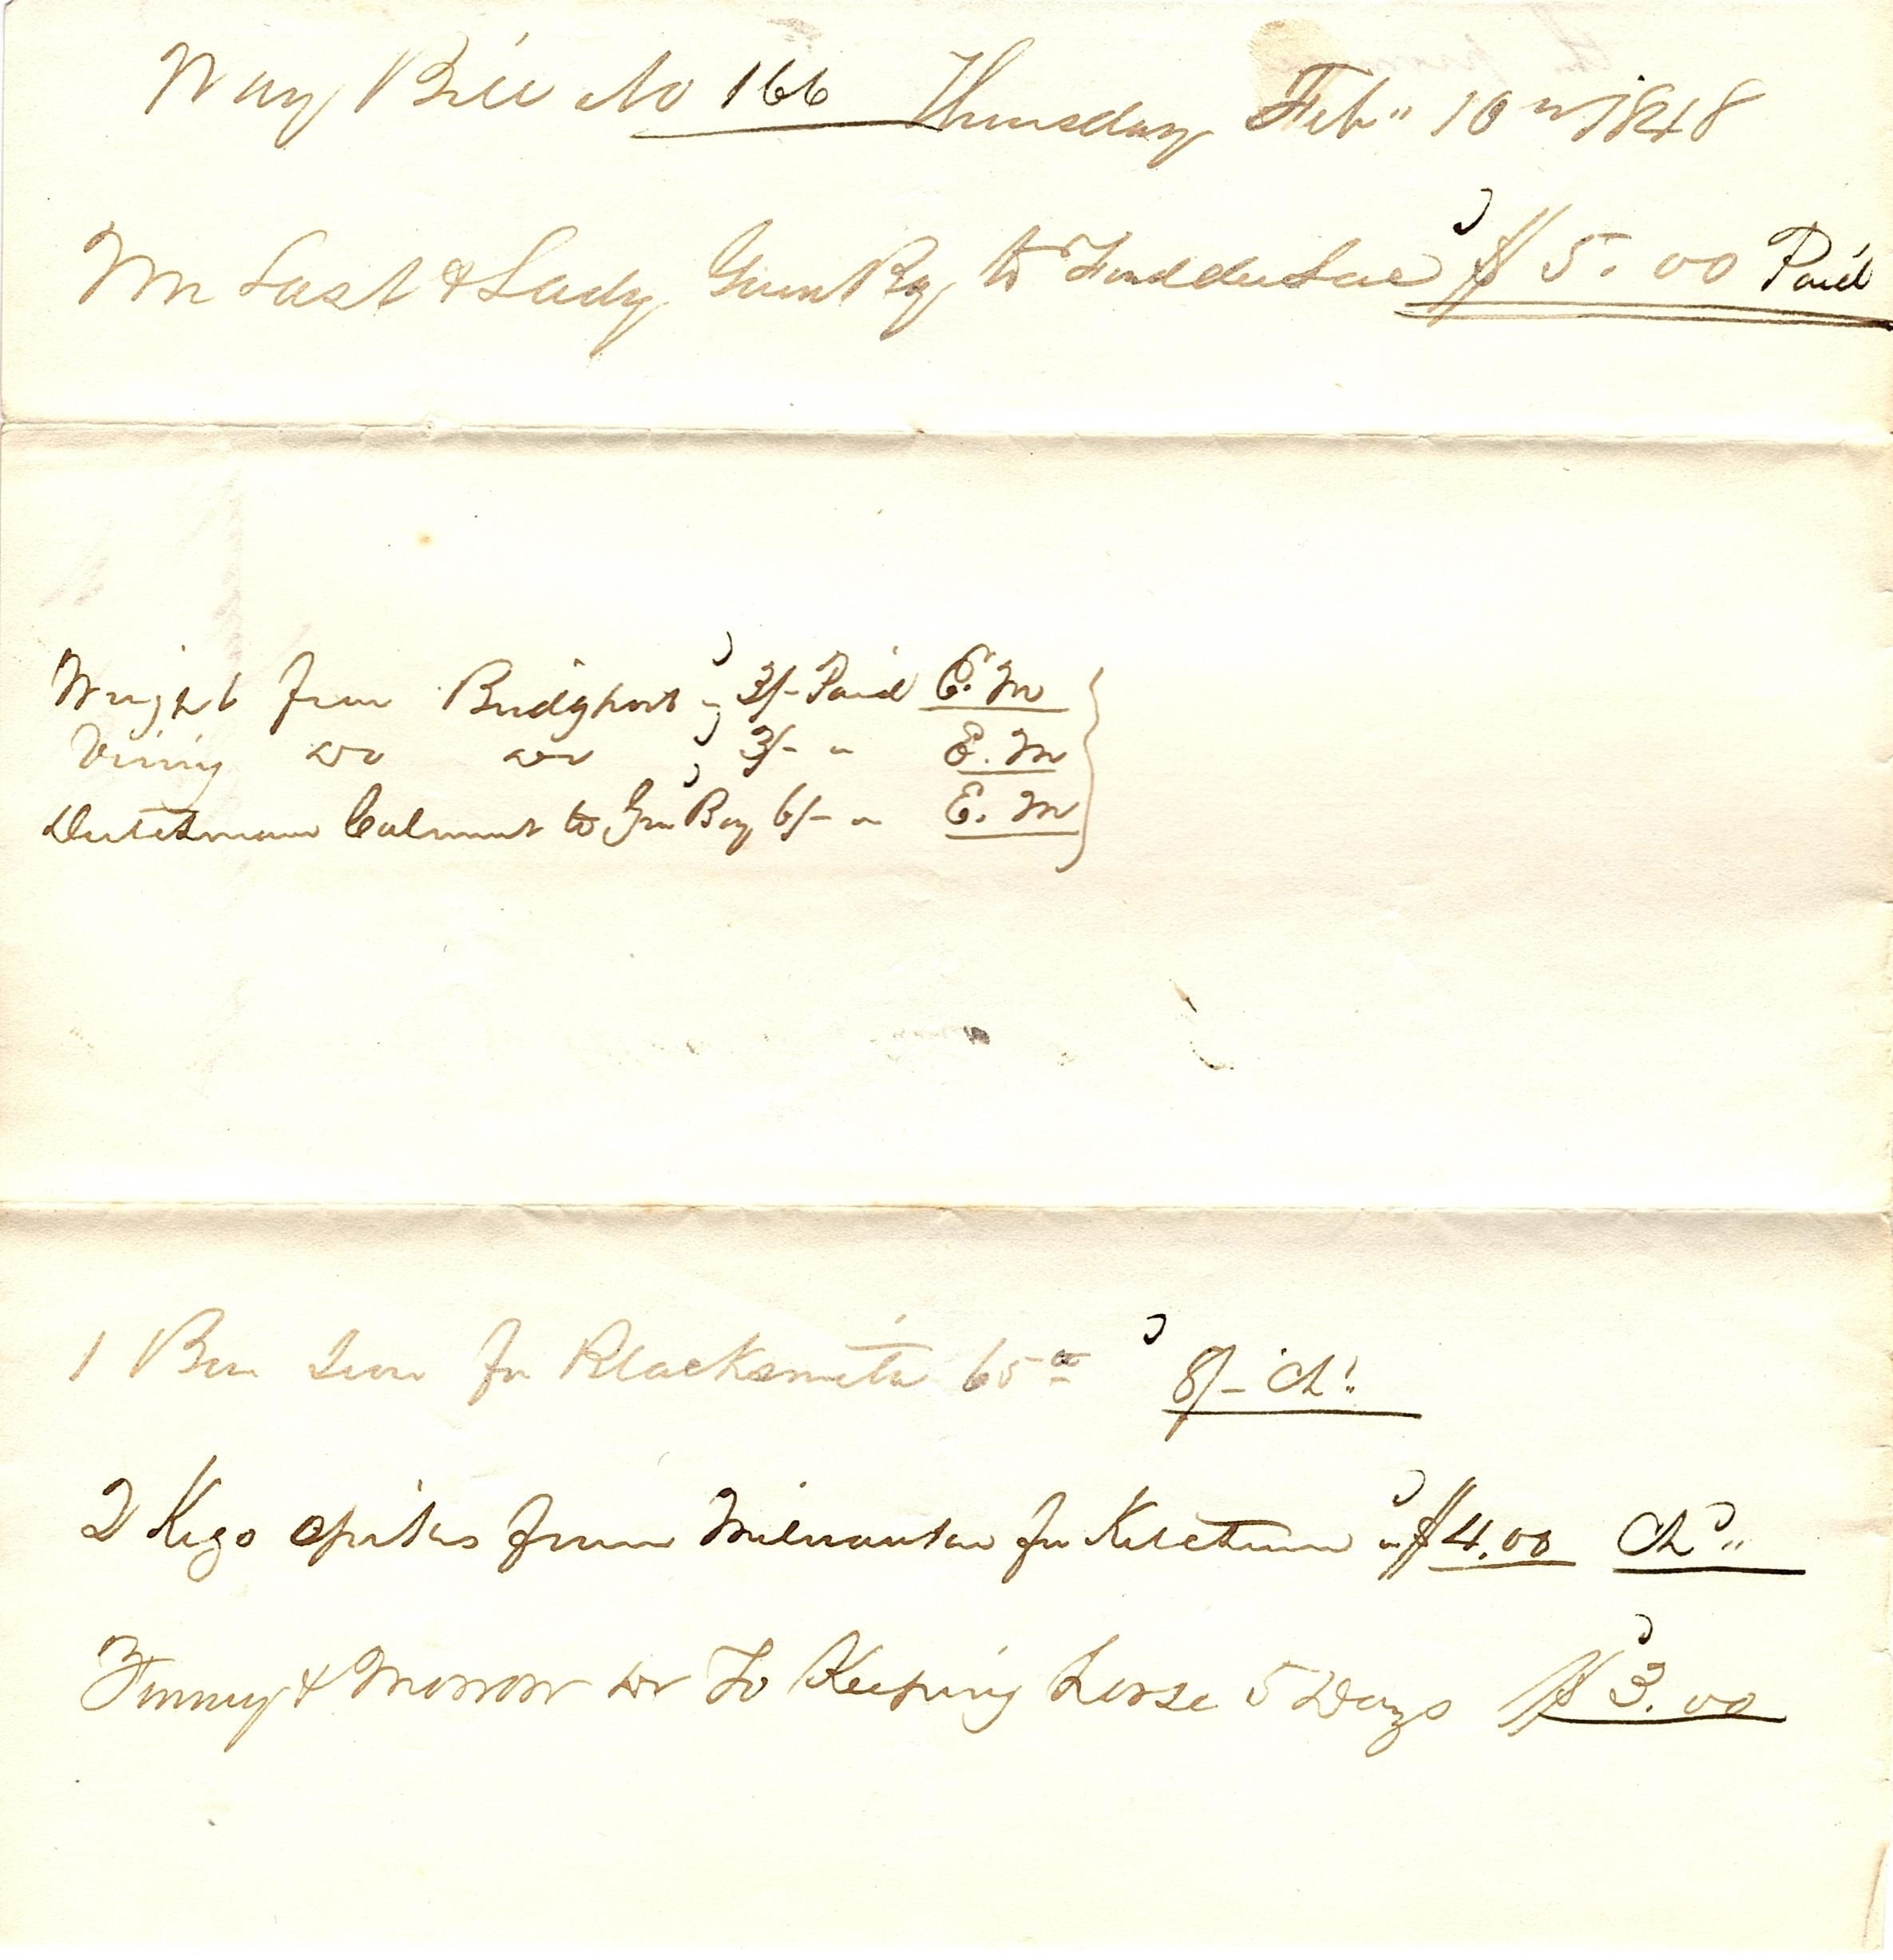 Way Bill No 166 Thursday Feb" 10th 1848
Mr Last & Lady Green Bay to Fonddulac $5.00 Paid
Wright from Bridgport " 3/- Paid E. M
Vining do do " 3/- " E. M
Dutchman Calumut to Gn Bay 6/- " E. M
1 Iron for Blacksmith 65 8/- Chd
2 Kegs from Milwaukee for Ketchum " $4.00 Chd "
Finney & Morrow Dr To Keeping horse 5 Days $3.00